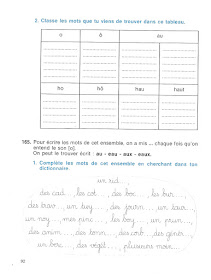 2. Classe les mots que tu viens de trouver dans ce tableau.
o ô au
ho hô haut
165. Pour écrire les mots de cet ensemble, on a mis ... chaque fois qu'on
entend le son [o].
On peut le trouver écrit : au - eau - aux - eaux.
1. Complète les mots de cet ensemble en cherchant dans ton
dictionnaire.
un nid
des cad... les cot... des boc... les bur...
des trav... un boy... des journ... un taur...
un noy... mes pinc... les boy... un prun...
des anim... des tonn... des corb... des génér...
un broc... des végét... plusieurs moin...